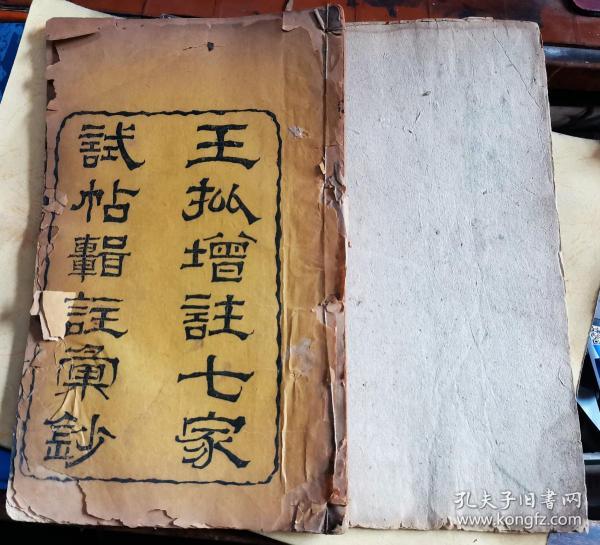 王批增註七家
試帖輯註彙鈔
孔夫子旧书网
www.kongfz.com